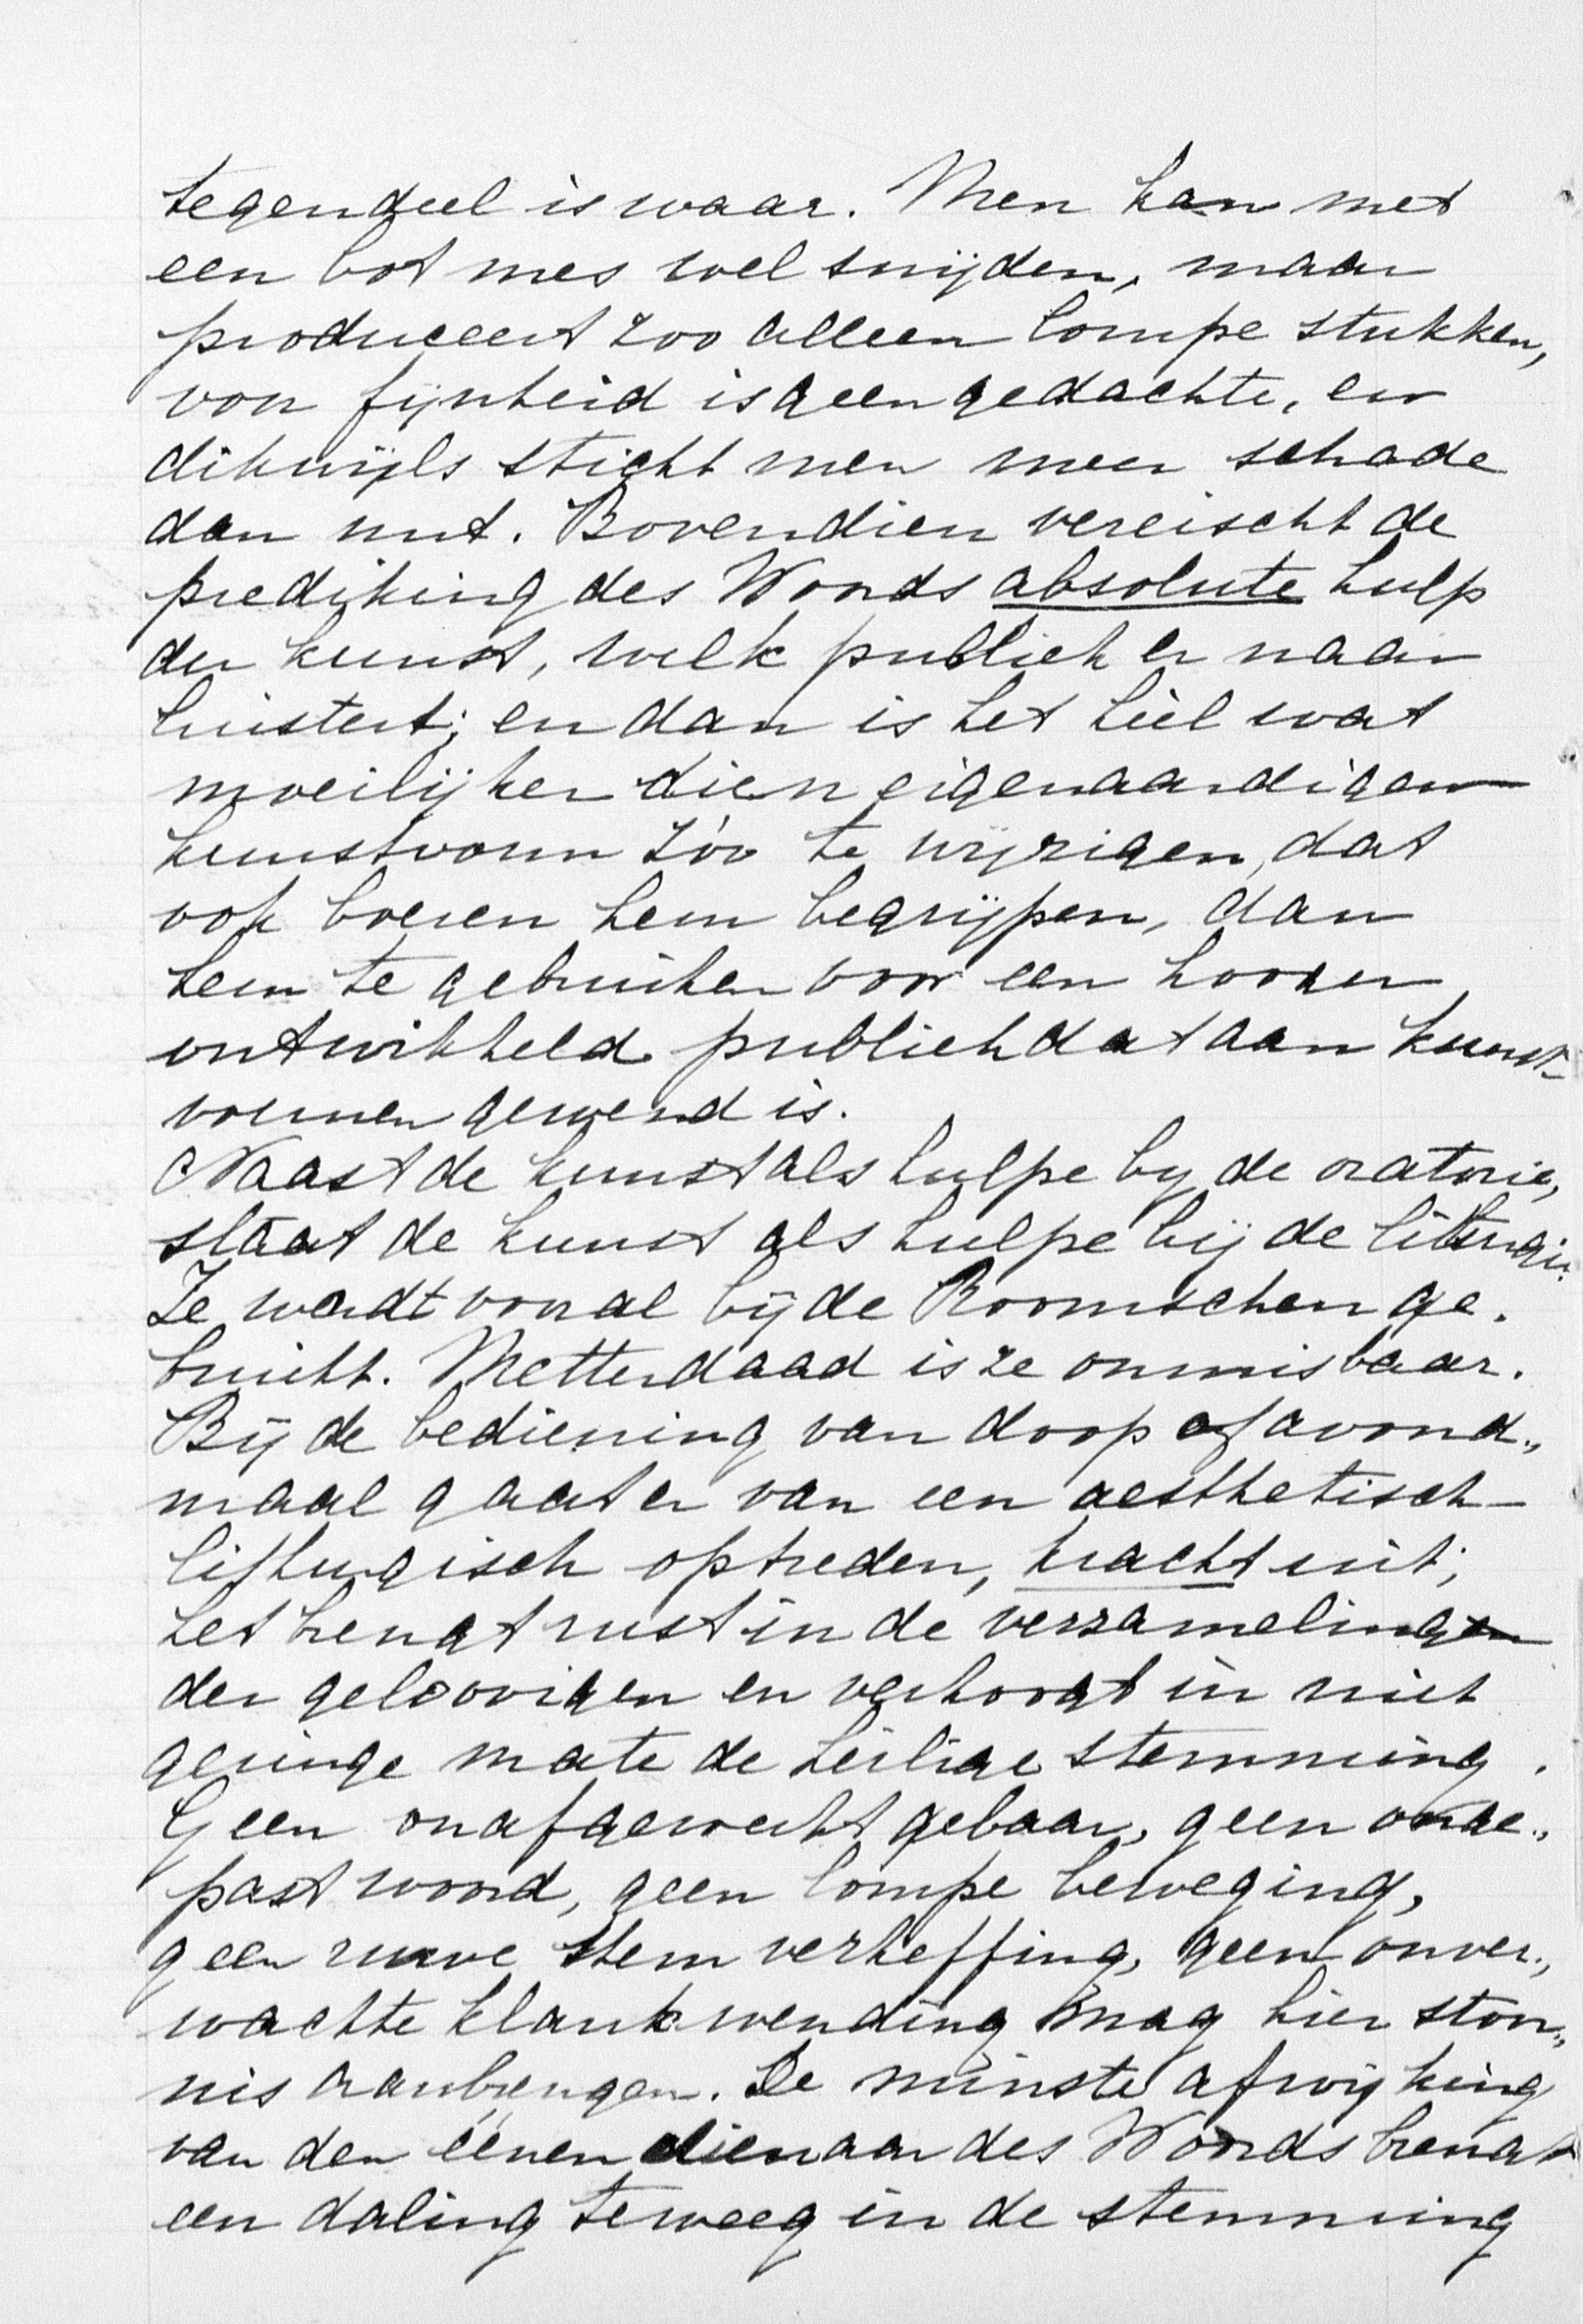 tegendeel is waar. Men kan met
een bot mes wel snijden, maar
produceert zoo alleen lompe stukken,
von fijnheid is geen gedachte, en
dikwijls sticht men meer schade
dan nut. Bovendien vereischt de
prediking des Woords absolute hulp
der kunst, welk publiek er naar
luistert; en dan is het héél wat
moeilijker dien eigenaardigen
kunstvorm zóó te wijzigen, dat
ook boeren hem begrijpen, dan
hem te gebruiken voor een hooger
ontwikkeld publiek dat aan kunst-
vormen gewend is.
Naast de kunst als hulpe by de oratorie,
staat de kunst als hulpe bij de liturgie.
Ze wordt vooral bij de Roomschen ge-
bruikt. Metterdaad is ze onmisbaar.
Bij de bediening van doop of avond-
maal gaat er van een aesthetisch-
liturgisch optreden, kracht uit;
het brengt rust in de verzameling
der geloovigen en verhoogt in niet
geringe mate de heilige stemming.
Geen onafgewerkt gebaar, geen onge-
past woord, geen lompe beweging,
geen ruwe stem verheffing, geen onver-
wachte klank wending mag hier stoor-
nis aanbrengen. De minste afwijking
van den éénen dienaar des Woords brengt
een daling teweeg in de stemming